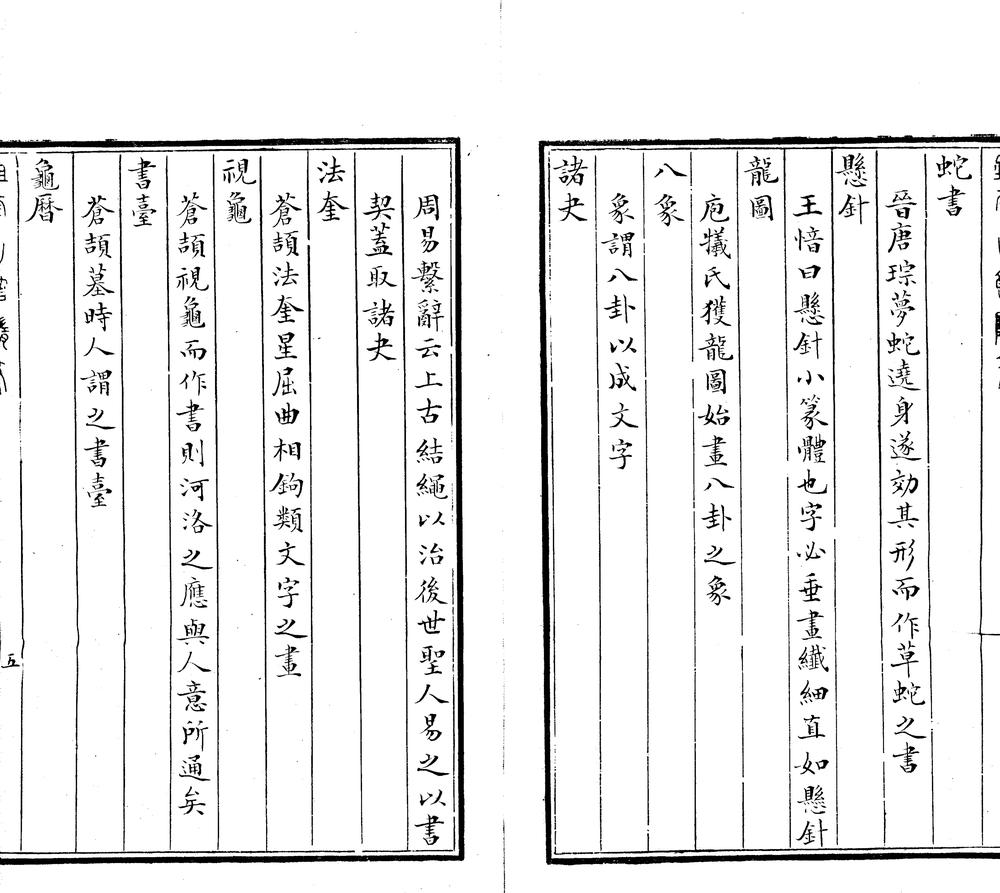 蛇書
晉唐琮夢蛇遶身遂効其形而作草蛇之書
懸針
王愔曰懸針小篆體也字必垂畫纎細直如懸針
龍圖
庖犧氏獲龍圖始畫八卦之象
八象
象謂八卦以成文字
諸夬
周易繫辭云上古結繩以治後世聖人易之以書
契蓋取諸夬
法奎
蒼頡法奎星屈曲相鉤類文字之畫
視龜
蒼頡視龜而作書則河洛之應與人意所通矣
書臺
蒼頡墓時人謂之書臺
龜曆
五